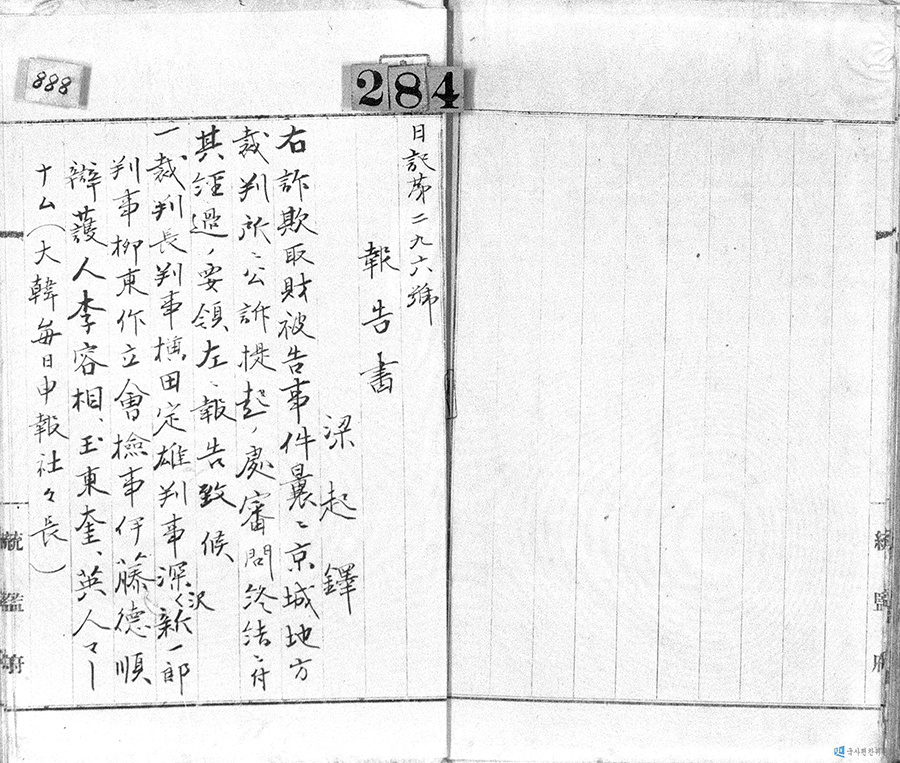 888
284
日記第二九六號
報告書
梁起鐸
右詐欺取財被告事件曩ニ京城地方
裁判所ニ公訴提起ノ處審問終結ニ付
其経過ノ要領左ニ報告致候
一裁判長判事横田定雄判事深沢新一郎
判事柳東作立會檢事伊藤德順
辯護人李容相、玉東奎、英人マー
ナム(大韓每日申報社々長)
統監府
統監府
국사편찬위